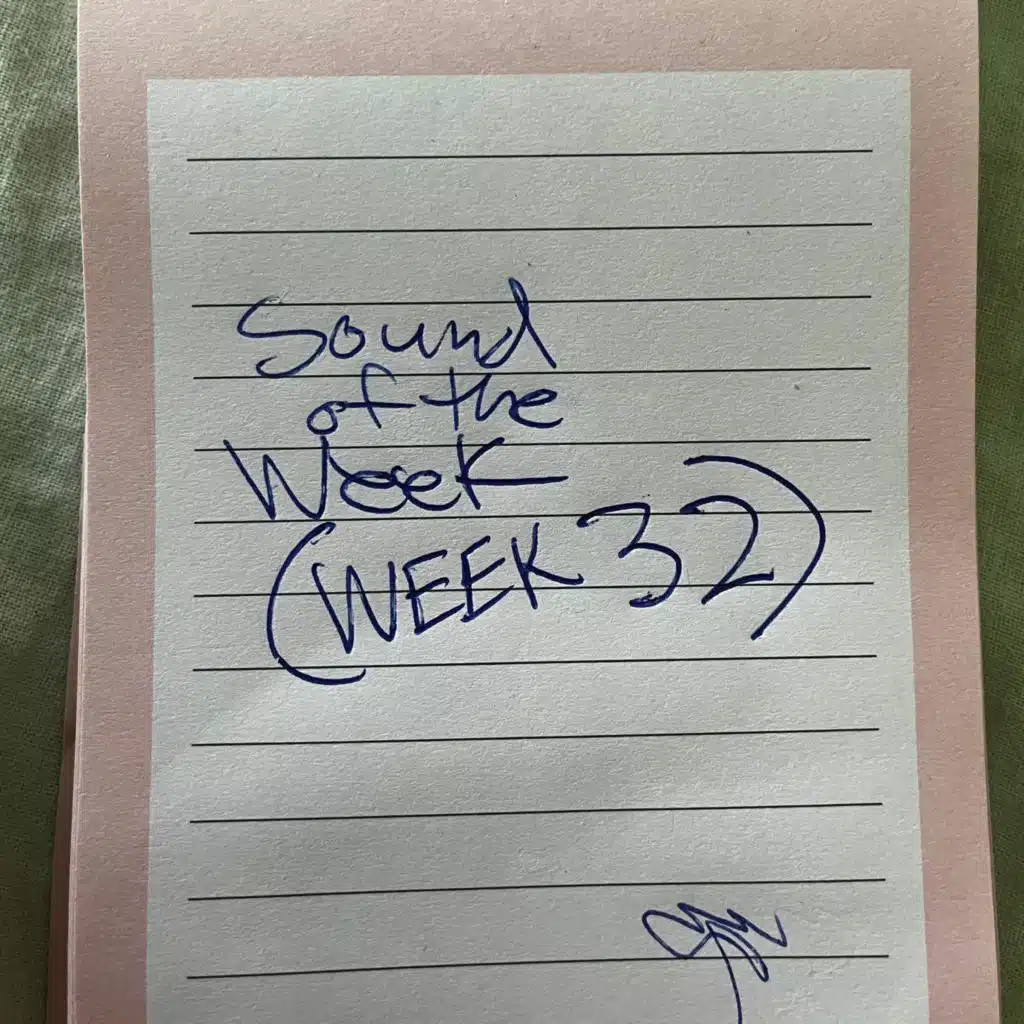 Sound
of the
Week
(WEEK 32)